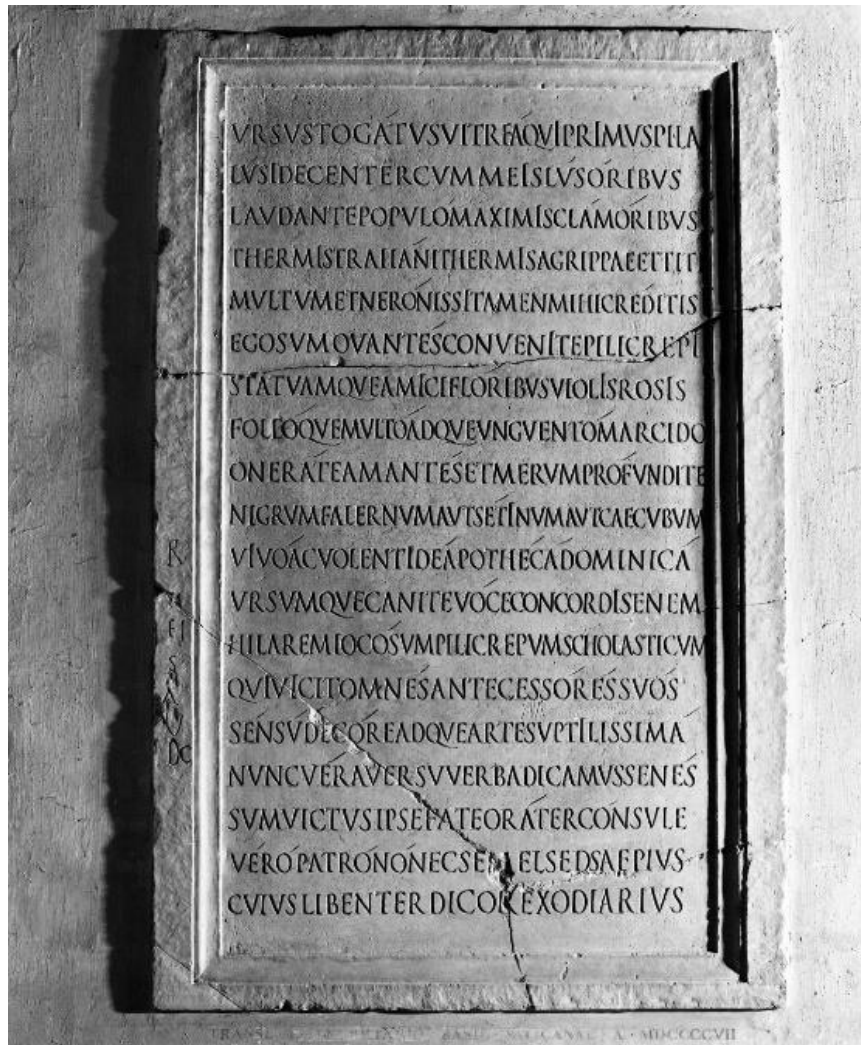 VRSVSTOGATVSVITREAQVIPRIMVSPILA
LVSIDECENTERCVMMEISLVSORIBVS
LAVDANTEPOPVLOMAXIMISCLAMORIBVS
THERMISTRAIANITHERMISAGRIPPAEETTITI
MVLTVMETNERONISSITAMENMIHICREDITIS
EGOSVMOVANTESCONVENITEPILICREPI
STATVAMQVEAMICIFLORIBVSVIOLISROSIS
FOLIOQVEMVLTOADQVEVNGVENTOMARCIDO
ONERATEAMANTESETMERVMPROFVNDITE
NIGRVMFALERNVMAVTSETINVMAVTCAECVBVM
VIVOACVOLENTIDEAPOTHECADOMINICA
VRSVMQVECANITEVOCECONCORDISENEM
HILAREMIOCOSVMPILICREPVMSCHOLASTICVM
QVIVICITOMNESANTECESSORESSVOS
SENSVDECOREADQVEARTESVPTILISSIMA
NVNCVERAVERSVVERBADICAMVSSENES
SVMVICTVSIPSEFATEORATERCONSVLE
VEROPATRONONECSEMELSEDSAEPIVS
CVIVSLIBENTERDICOREXODIARIVS
TRANSL BASIL A · MDCCCCVII